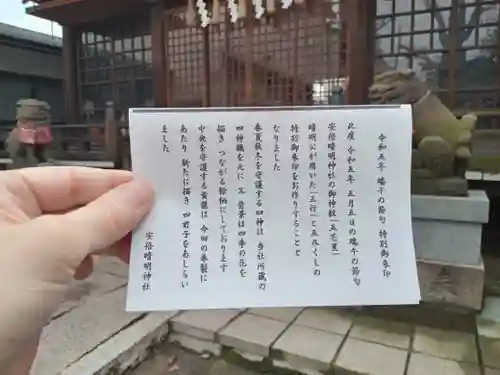 令和五年 端午の節句 特別御朱印
此度 令和五年五月五日の端午の節句
安倍晴明神社の御神紋「五芒星」
晴明公が用いた「五行」と五尽くしの
特別御朱印をお作りすることと
なりました
春夏秋冬を守護する四神は 当社所蔵の
を元に 背景は四季の花を
描き つながる絵柄にしております
中央を守護する黄龍は 今回の奉製に
あたり 新たに描き 四君子をあしらい
ました
安倍晴明神社